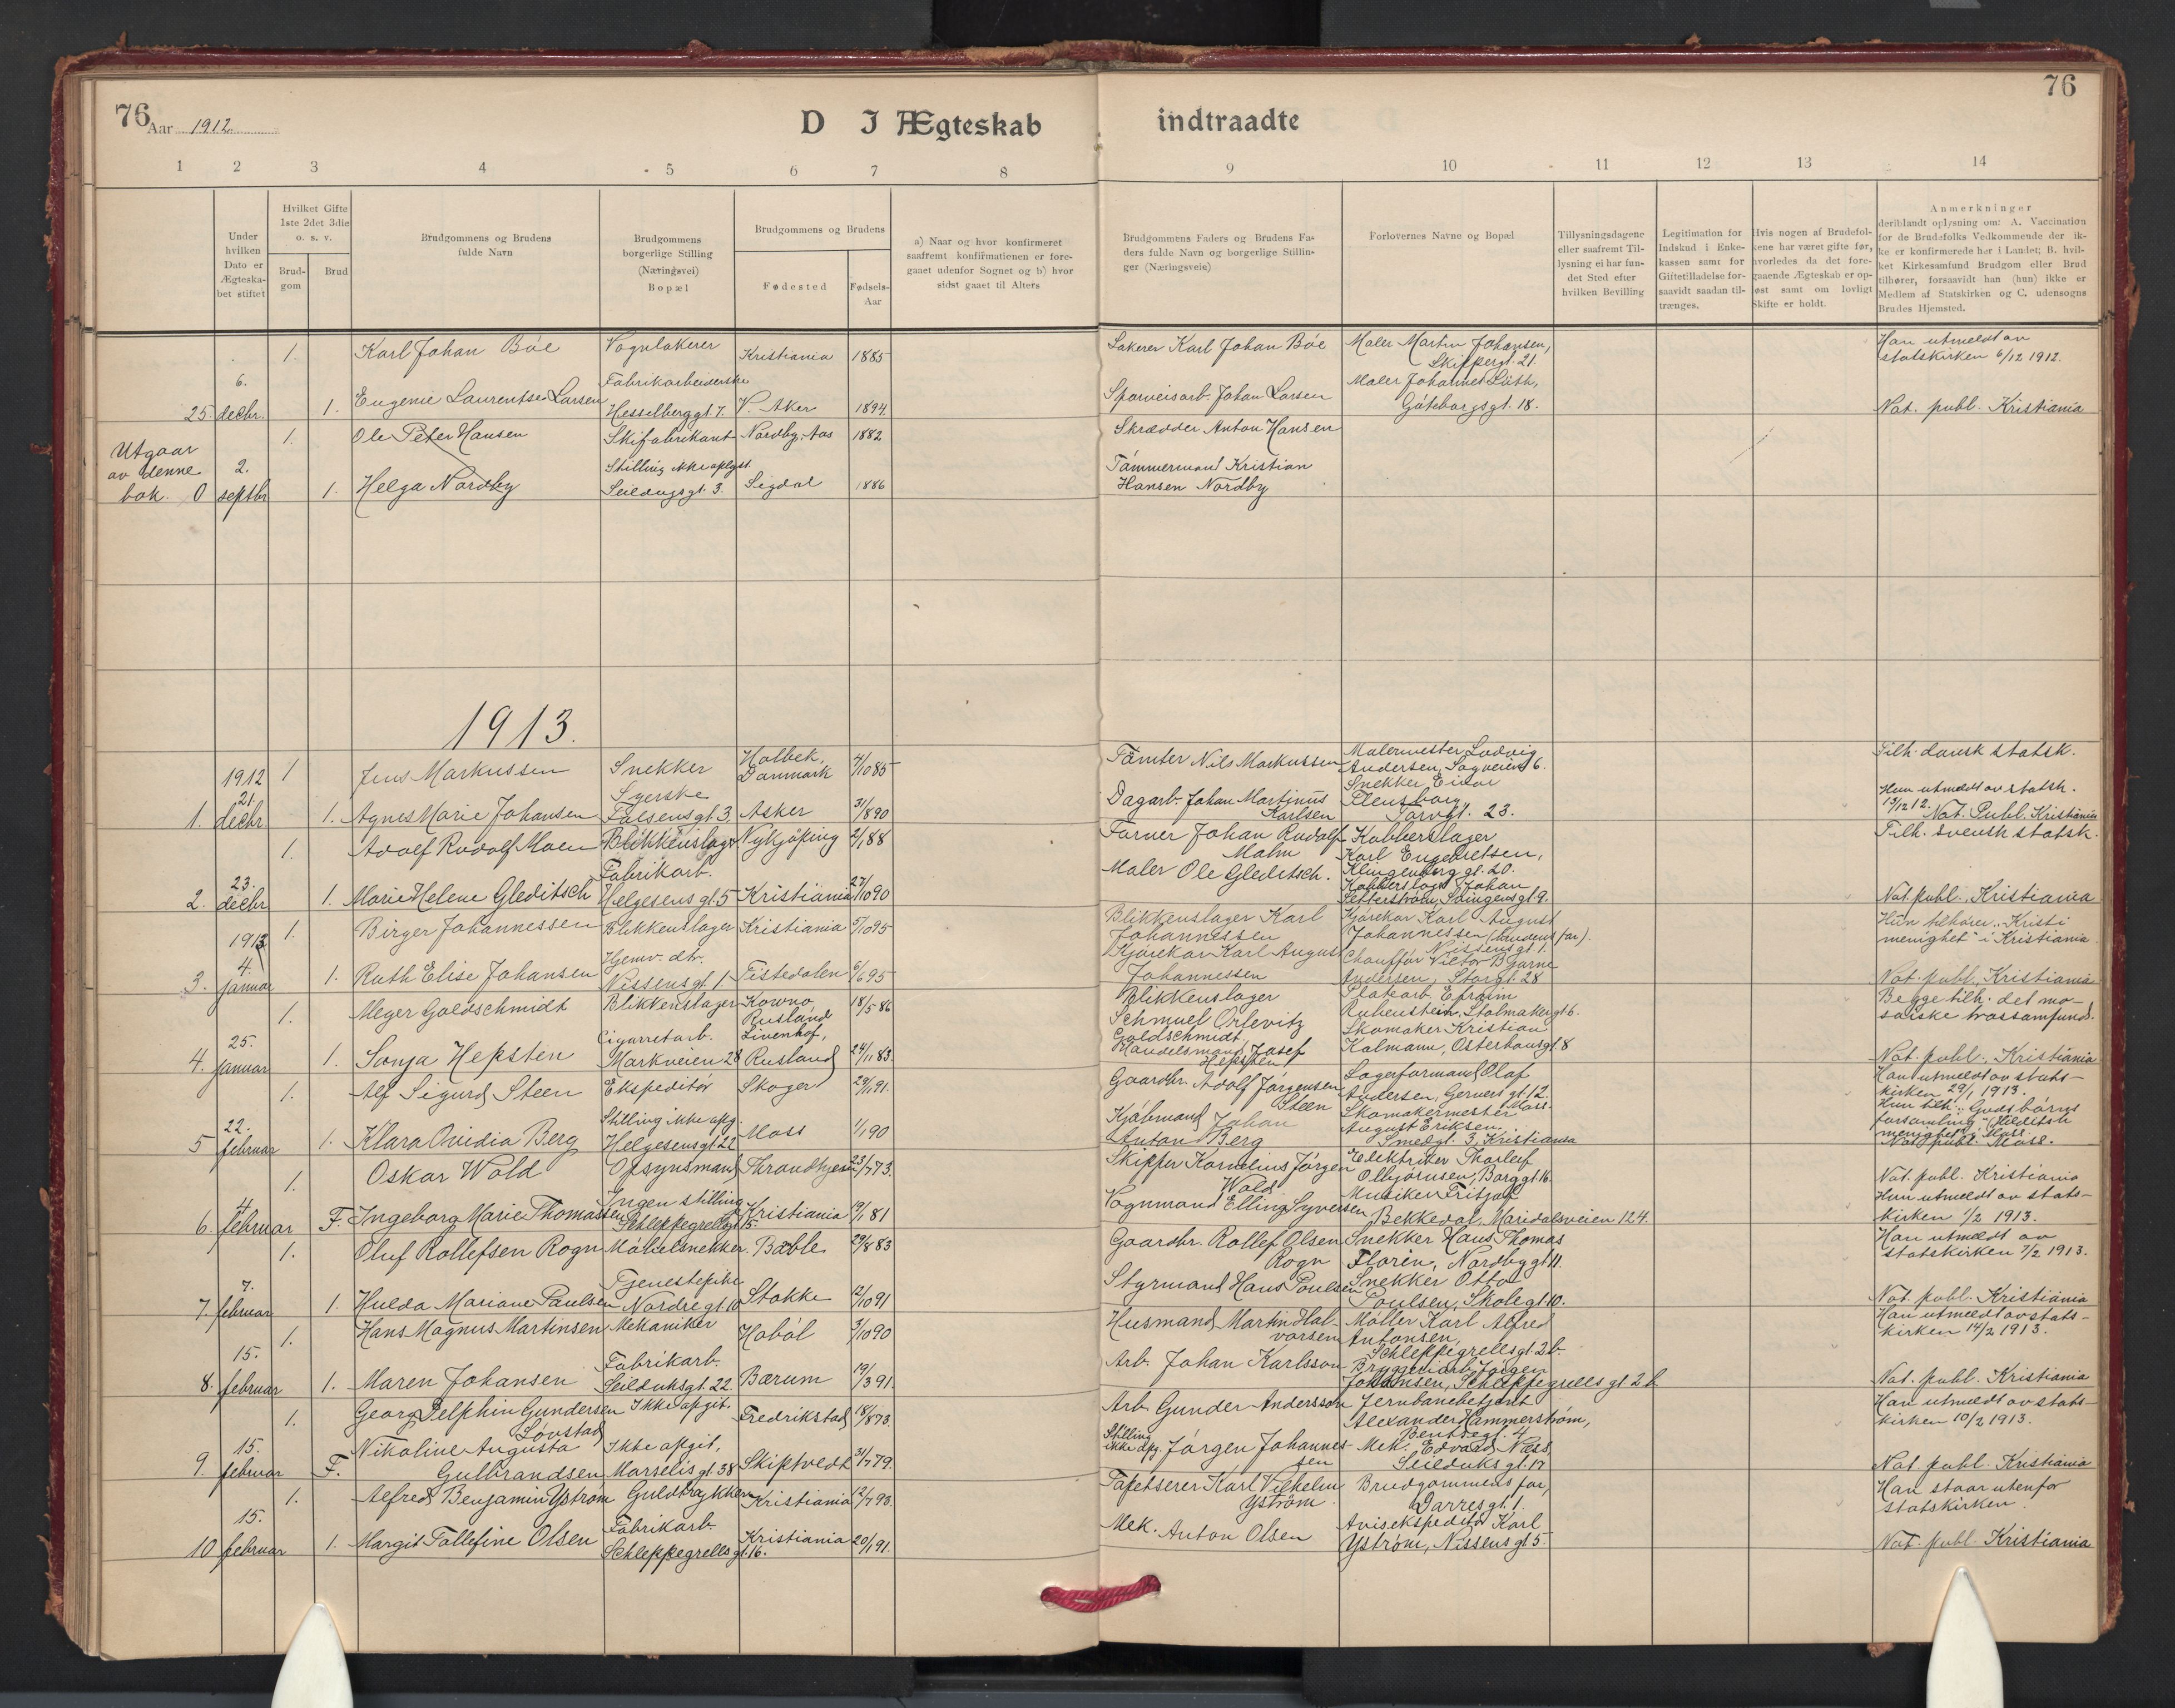 76 Aar 1912
D I Ægteskab indtraadte
76
1 2 3 4 5 6 7 8 9 10 11 12 13 14
Under hvilken Dato er Ægteska-bet stiftet
Hvilket Gifte 1ste 2det 3die o. s. v.
Brud-gom
Brud
Brudgommens og Brudens fulde Navn
Brudgommens borgerlige Stilling (Næringsvei) Bopæl
Brudgommens og Brudens
Fødested
Fødsels-Aar
a) Naar og hvor konfirmeret saafremt konfirmationen er fore-gaaet udenfor Sognet og b) hvor sidst gaaet til Alters
Brudgommens Faders og Brudens Fa-ders fulde Navn og borgerlige Stillin-ger (Næringsveie)
Forlovernes Navne og Bopæl
Tillysningsdagene eller saafremt Til-lysning ei har fun-det Sted efter hvilken Bevilling
Legitimation for Indskud i Enke-kassen samt for Giftetilladelse for-saavidt saadan til-trænges.
Hvis nogen af Brudefol-kene har været gifte før, hvorledes da det fore-gaaende Ægteskab er op-løst samt om lovligt Skifte er holdt.
Anmerkninger deriblandt oplysning om: A. Vaccination for de Brudefolks Vedkommende der ik-ke er konfirmerede her i Landet; B. hvil-ket Kirkesamfund Brudgom eller Brud tilhører, forsaavidt han (hun) ikke er Medlem af Statskirken og C. udensogns Brudes Hjemsted.
1. Karl Johan Bøe Vognlakerer Kristiania 1885 Lakerer Karl Johan Bøe Maler Martin Johansen, Skippergt. 21. Han utmeldt av statskirken 6/12 1912.
25 6. decbr. 1. Eugenie Laurentse Larsen Fabrikarbeiderske Hesselberggt. 7. V. Aker 1894 Sporveisarb. Johan Larsen Maler Johannes Lüth, Göteborgsgt. 18. Not. publ. Kristiania
1. Ole Peter Hansen Skifabrikant Nordby, Aas 1882 Skrædder Anton Hansen
Utgaar av denne bok. 0 2. septbr 1. Helga Nordby Stilling ikke oplyst. Seildugsgt. 3. Sigdal 1886 Tømmermand Kristian Hansen Nordby
1913.
1 Jens Markussen Snekker Holbek, Danmark 4/10 85 Tømter Nils Markussen Malermester Ludvig Andersen, Sagveien 6. Tilh. dansk statsk.
1. 1912 21. decbr 1. Agnes Marie Johansen Syerske Falsensgt. 3. Asker 31/8 90 Dagarb. Johan Martinus Karlsen Snekker Einar Flensborg, Torvgt. 23. Hun utmeldt av statsk. 19/12 12. Not. Publ. Kristiania
1. Adolf Rudolf Moen Blikkenslager Nykjøping 2/1 88 Former Johan Rudolf Malm Kobberslager Karl Engebretsen, Klingenberg gt. 20. Tilh. svensk statsk.
2. 23. decbr 1. Marie Helene Gleditsch Fabrikarb. Helgesens gt. 5 Kristiania 27/10 90 Maler Ole Gleditsch. Kobberslager Johan Setterstrøm, Not. publ. Kristiania
1. Birger Johannessen Blikkenslager Kristiania 5/10 95 Blikkenslager Karl Johannessen Kjørekar Karl August Johannessen (brudens far). Nissensgt. 1. Hun tilhører "Kristi menighet" i Kristiania
3. 1913 4. januar 1. Ruth Elise Johansen Hjemv. dtr. Nissensgt. 1 Tistedalen 6/6 95 Kjørekar Karl August Johannessen Chauffør Victor Bjarne Andersen, Storgt. 28 Not. publ. Kristiania
1. Meyer Goldschmidt Blikkenslager Kowno, Rusland 18/5 86 Blikkenslager Schmuel Orlevitz Goldschmidt. Platearb. Efraim Rubenstein, Stolmakergt 6. Begge tilh. det mo-saiske trossamfund.
4. 25. januar 1. Sonja Hepsten Cigarretarb. Markveien 28 Livenhof, Rusland 24/11 83. Handelsmand Josef Hepsten Skomaker Kristian Kalmann, Osterhausgt. 8 Not. publ. Kristiania
1. Alf Sigurd Steen Ekspeditør Skoger 29/1 91. Gaardbr. Adolf Jørgensen Steen Lagerformand Olaf Andersen, Gerners gt. 12. Moss. Han utmeldt av stats-kirken 29/1 1913.
5 22. februar 1. Klara Ovidia Berg Stilling ikke opg. Helgesensgt. 22 Moss 1/1 90 Kjøbmand Johan Anton Berg Skomakermester August Eriksen. Smedgt. 3, Kristiania Hun tilh. "Guds børns forsamling" menighet i Moss. Not. publ. Moss.
1. Oskar Wold Opsynsmand Throndhjem 23/7 73. Skipper Kornelius Jørgen Wold Elektriker Thorleif Olbjørnsen, Borggt. 16. Not. publ. Kristiania
6. 4 februar F. Ingeborg Marie Thomassen Ingen stilling Schleppegrellsgt. 15. Kristiania 19/1 81 Vognmand Elling Syversen Musiker Fritjof Bekkedal, Maridalsveien 124. Hun utmeldt av stats-kirken 1/2 1913.
1. Oluf Rollefsen Rogn Møbelsnekker. Bøble 29/8 83 Gaardbr. Rollef Olsen Rogn Snekker Hans Thomas Floren, Nordbygt. 11. Han utmeldt av statskirken 7/2 1913.
7. 7. februar 1. Hulda Mariane Paulsen Tjenestepike Nordregt. 10 Stokke 12/10 91 Styrmand Hans Poulsen Snekker Otto Poulsen, Skolegt. 10. Not. publ. Kristiania
1. Hans Magnus Martinsen Mekaniker Hobøl 3/10 90 Husmand Martin Hal-vorsen Møller Karl Alfred Antonsen, Schleppegrellsgt. 2b. Han utmeldt av stats-kirken 14/2 1913.
8. 15. februar 1. Maren Johansen Fabrikarb. Seilduksgt. 22. Bærum 19/3 91. Arb. Johan Karlsson Bryggeriarb. Jørgen Johansen, Schleppegrells gt. 2 b. Not. publ. Kristiania
1. Georg Delphin Gundersen Løvstad Ikke opgit. Fredrikstad 18/8 73. Arb. Gunder Andersson Jernbanebetjent Alexander Hammerstrøm, Bentsegt. 4 Han utmeldt av stats-kirken 10/2 1913.
9. 15. februar F. Nikoline Augusta Gulbrandsen Ikke opgit, Marselis gt. 38 Skiptvedt 31/7 79. Stilling ikke opg. Jørgen Johannes-sen Mek. Edvard Næss, Seilduks gt. 17 Not. publ. Kristiania
1. Alfred Benjamin Yström Guldtrykker Kristiania 12/7 93. Tapetserer Karl Vilhelm Yström. Brudgommens far, Darres gt. 1. Han staar utenfor statskirken.
10 15. februar 1. Margit Tollefine Olsen Fabrikarb. Schleppegrells gt. 16. Kristiania 20/1 91. Mek. Anton Olsen Avisekspeditør Karl Yström, Nissens gt. 5. Not. publ. Kristiania